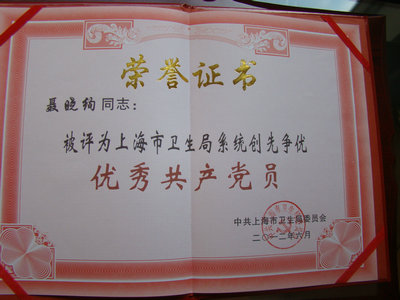 荣誉证书
聂晓绚同志：
被评为上海市卫生局系统创先争优
优秀共产党员
中共上海市卫生局委员会
二〇一二年六月